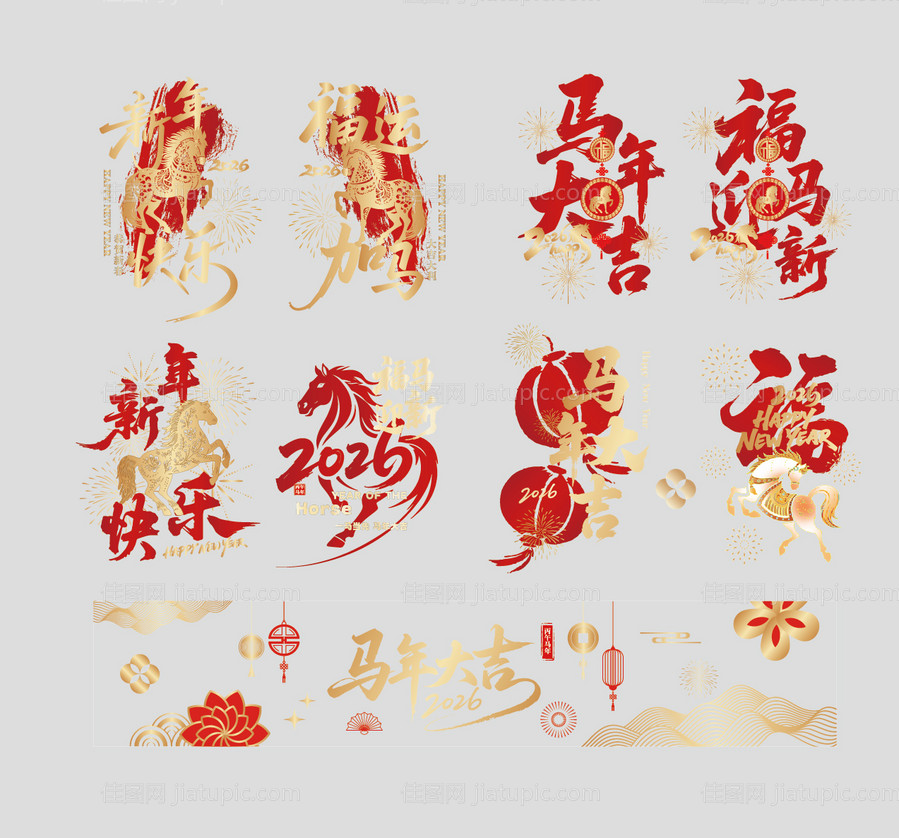 新年
2026
HAPPY NEW YEAR
快乐
福运
2026
HAPPY NEW YEAR
加马
马年
大吉
2026
福马
迎新
2026
新年
快乐
2026
YEAR OF THE
Horse
马年大吉
2026
Happy New Year
福
2026
HAPPY
NEW YEAR
马年大吉
2026
丙午马年
佳图网 jiatupic.com